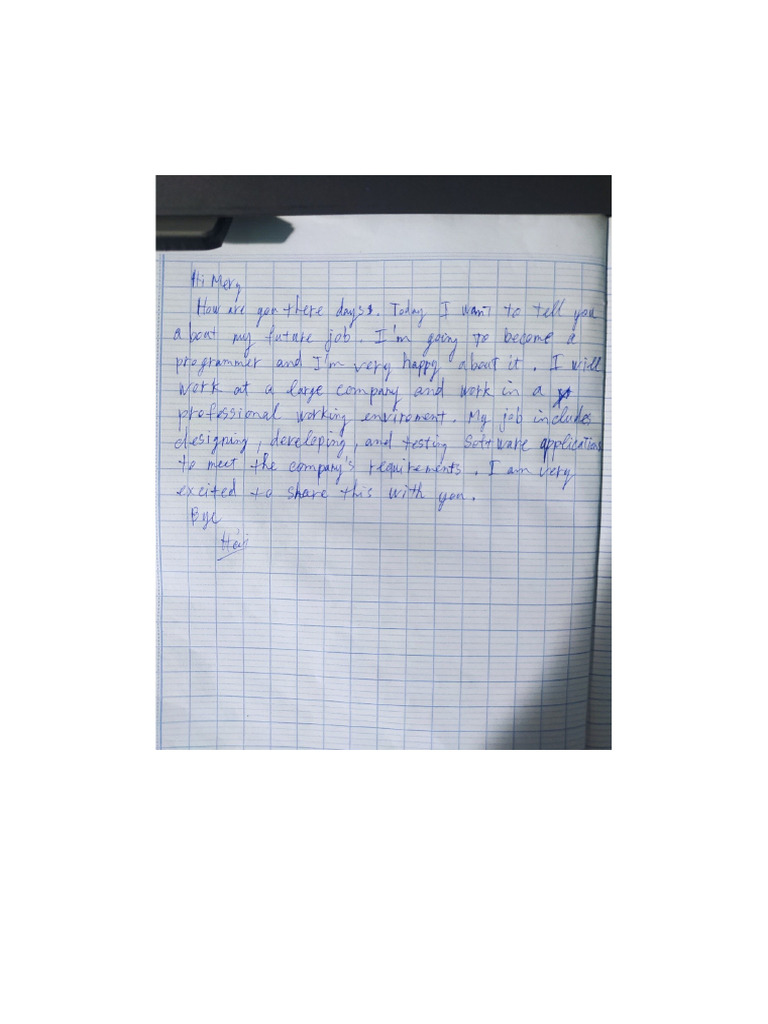 Hi Mery
How are you there days. Today I want to tell you
about my future job. I'm going to become a
programmer and I'm very happy about it. I will
work at a large company and work in a
professional working enviroment. My job includes
designing, developing, and testing software applications
to meet the company's requirements. I am very
excited to share this with you.
Bye